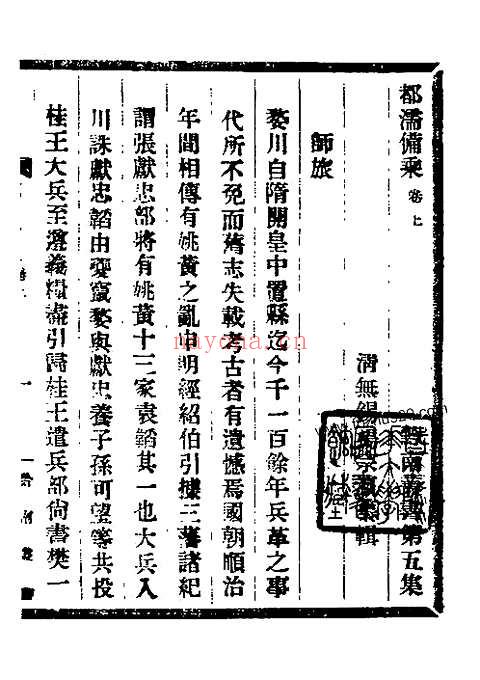 都濡備乘 卷上
黔南叢書第五集
清無錫楊宗瀛輯
師旅
婺川自隋開皇中置縣迄今千一百餘年兵革之事
代所不免而舊志失載考古者有遺憾焉國朝順治
年間相傳有姚黃之亂申明經紹伯引據三藩諸紀
謂張獻忠部將有姚黃十三家袁韜其一也大兵入
川誅獻忠韜由夔竄婺與獻忠養子孫可望等共投
桂王大兵至遵義糧盡引歸桂王遣兵部尚書樊一
一
黔南叢書
nayona.cn